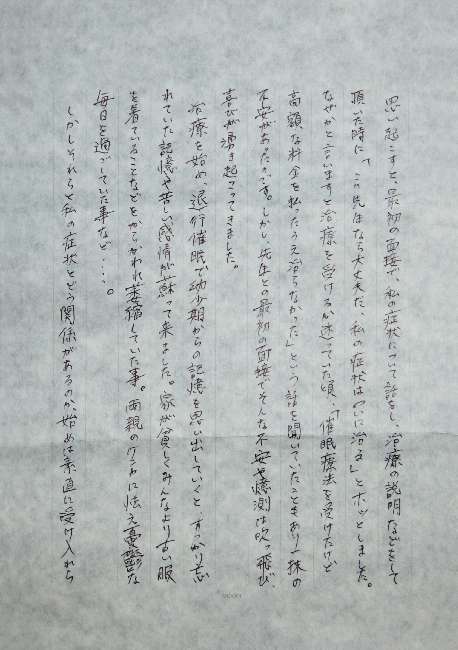 思い起こすと、最初の面接で、私の症状について話をし、治療の説明などをして
頂いた時に「この先生なら大丈夫だ、私の症状はついに治る」とホッとしました。
なぜかと言いますと治療を受けるか迷っていた頃、「催眠療法を受けたけど
高額な料金を払ったうえ治らなかった」という話を聞いていたこともあり一抹の
不安があったのです。しかし、先生との最初の面接でそんな不安や憶測は吹っ飛び、
喜びが湧き起こってきました。
治療を始め、退行催眠で幼少期からの記憶を思い出していくと、すっかり忘
れていた記憶や苦しい感情が蘇って来ました。家が貧しくみんなより古い服
を着ていることなどをからかわれ萎縮していた事。両親のケンカに怯え憂鬱な
毎日を過ごしていた事など・・・。
しかしそれらと私の症状とどう関係があるのか、始めは素直に受け入れら